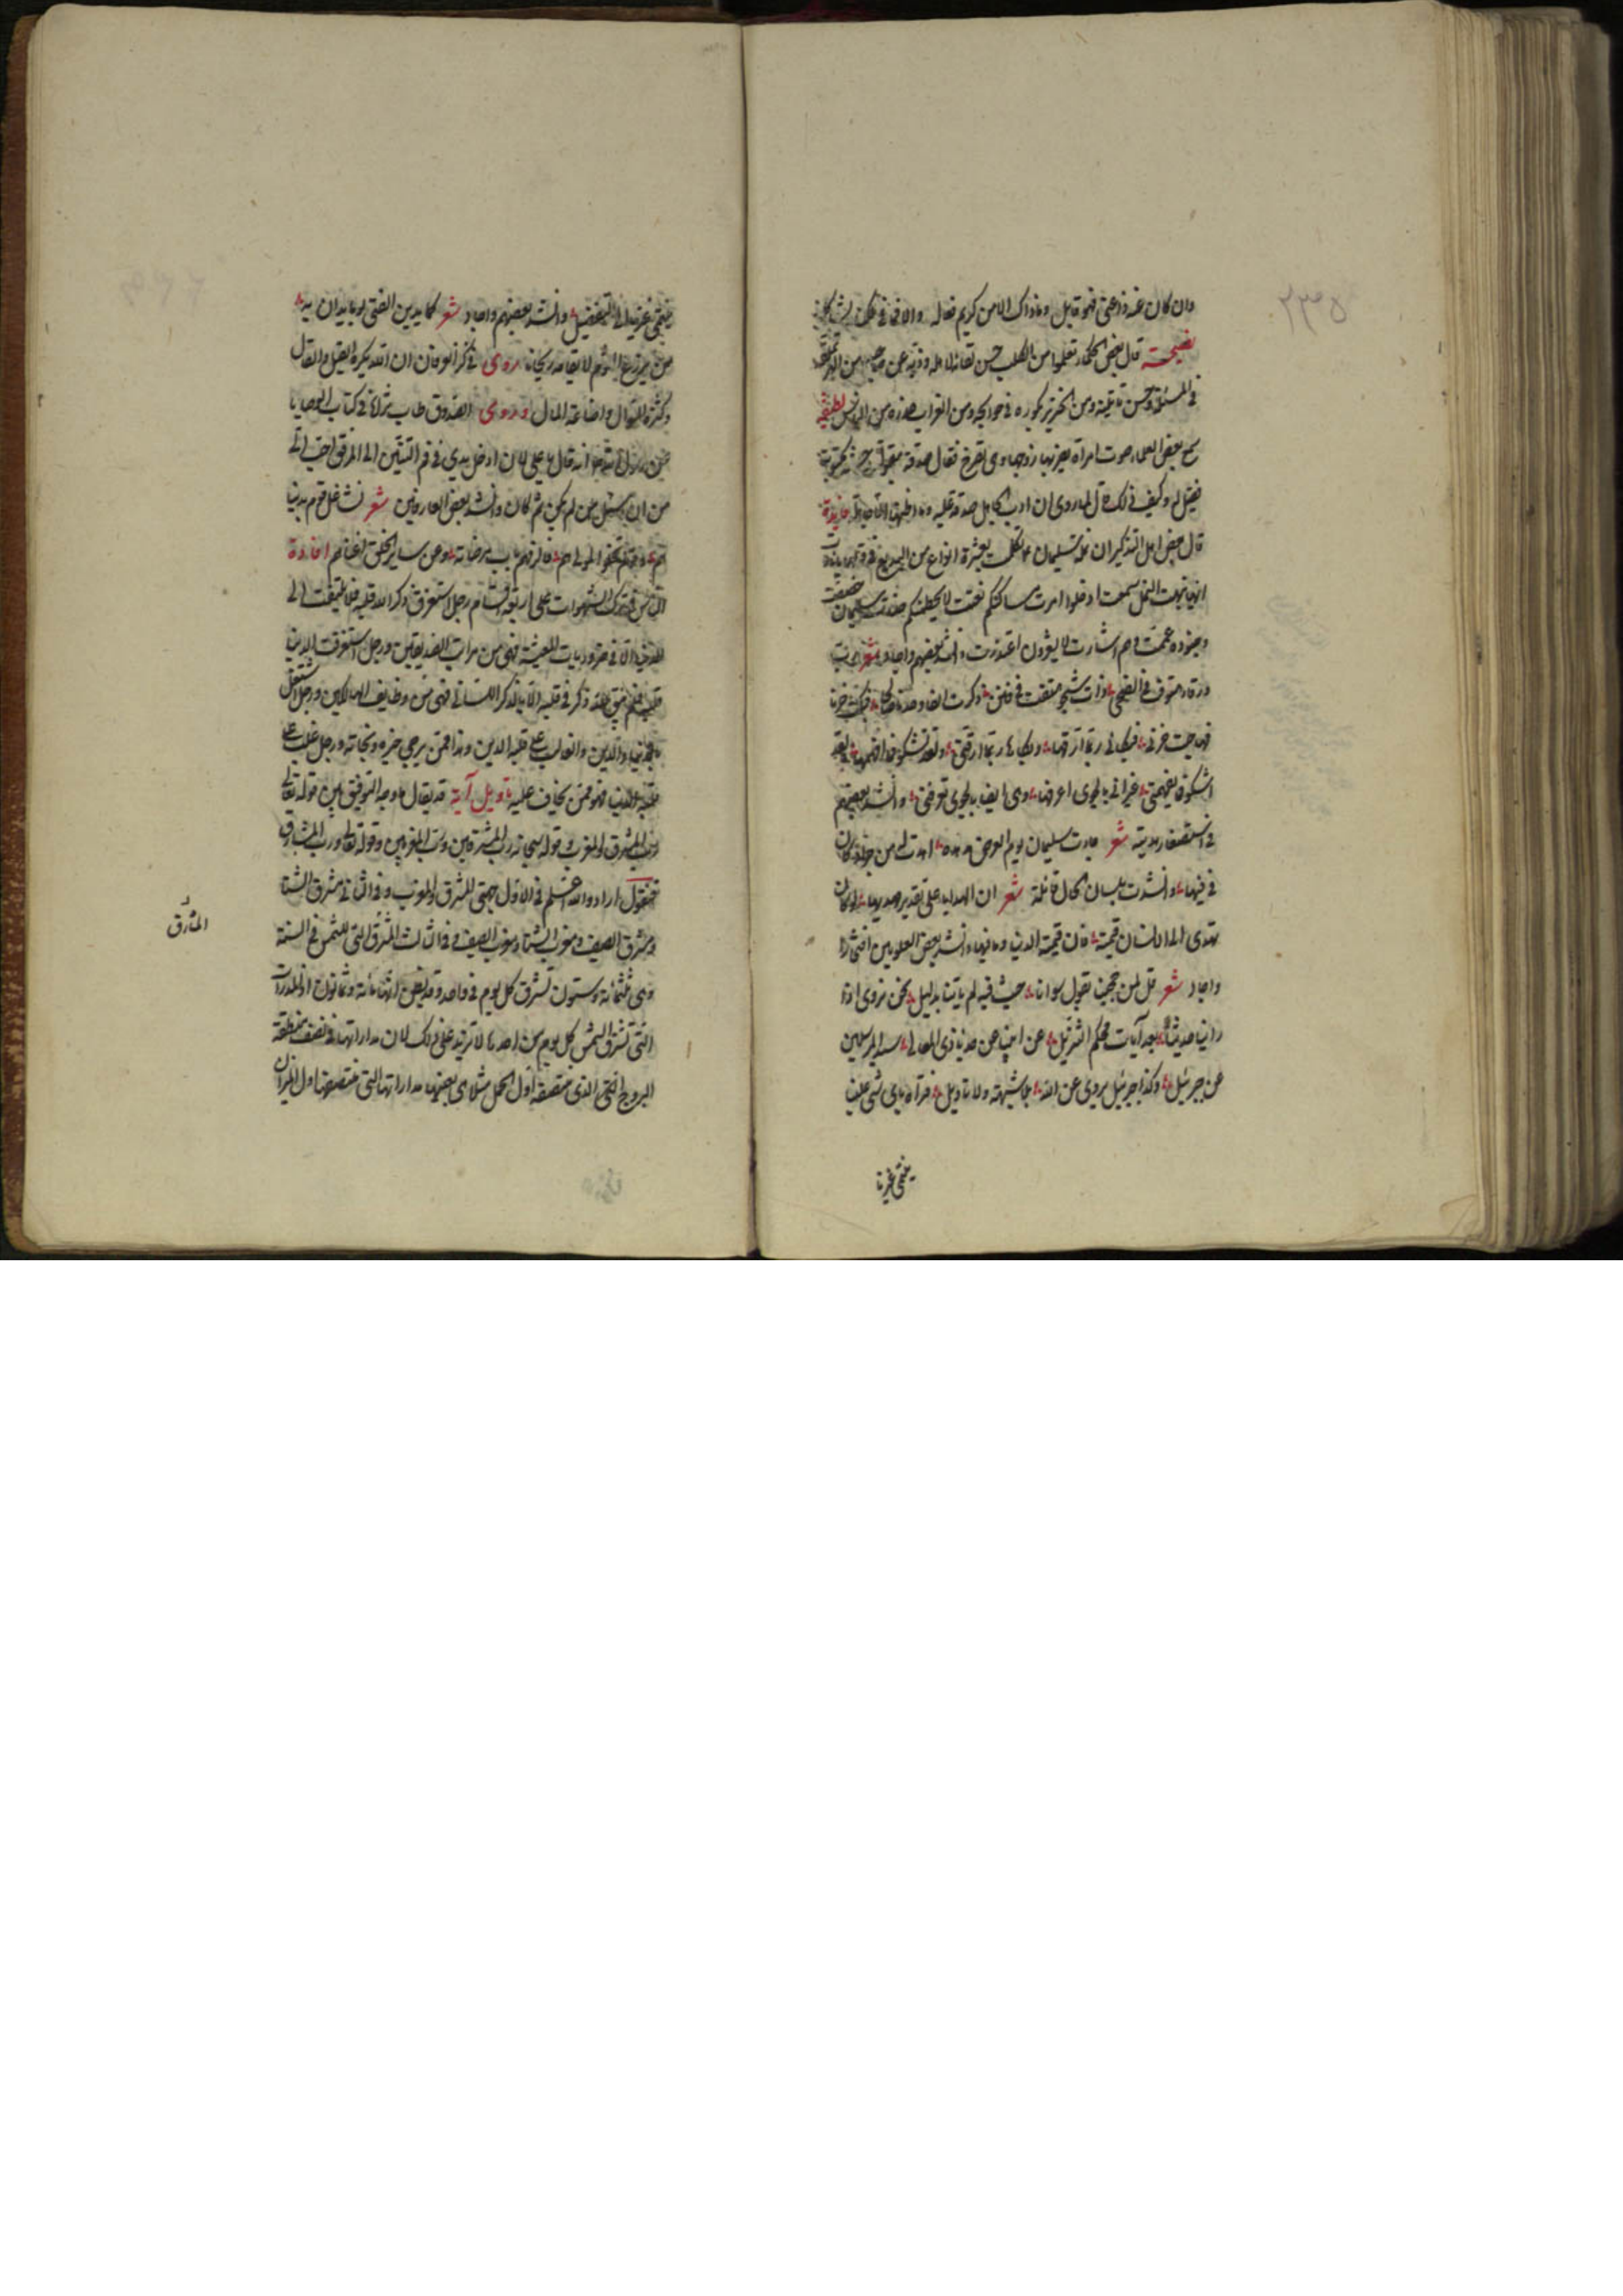 ٢٣٥
وان كان عنه ذاعنى فهو قابل وما ذاك الا من كريم فعاله والا فانى فى
نصيحة قال بعض الحكماء تعلموا من الكلب حسن لقائه لاهله وذبه عن صاحبه ومن
فى المسئلة وحسن ومن الخنزير بكوره فى حوايجه ومن الغراب حذره من الناس لطيفة
سمع بعض العلماء صوت امراة يضربها زوجها وهى تصرخ فقال صدقة مقبولة
فقيل له وكيف ذلك قال لما روى ان ادب الجاهل صدقة عليه وما اظنها الا جاهلة فايدة
قال بعض اهل التذكير ان نملة سليمان ع تكلمت بعشرة انواع من البديع فى قولها يا نادت
ايها نبهت النمل سمعت ادخلوا امرت مساكنكم نعتت لا يحطمنكم حذرت سليمان خصت
وجنوده عمت وهم اشارت لا يشعرون اعتذرت وانشد بعضهم واجاد شعر رب
ورقاء هتوف فى الضحى ذات شجو هتفت فى فنن ذكرت الفا ودهرا صالحا فبكت حزنا
فهاجت حزنى فبكائى ربما ارقها وبكاها ربما ارقنى ولقد تشكو فما افهمها ولقد
اشكو فما تفهمنى غير انى بالجوى اعرفها وهى ايضا بالجوى تعرفنى وانشد بعضهم
فى استصغار هدية شعر جاءت سليمان يوم العرض هدهدة اهدت له من جراد كان
فى فيها وانشدت بلسان الحال قائلة شعر ان الهدايا على تقدير مهديها لو كان
يهدى الى الانسان قيمته كان قيمة الدنيا وما فيها وانشد بعض العلويين افتخارا
واجاد شعر قل لمن حجنا بقول سوانا حيث فيه لم ياتنا بدليل نحن نروى اذا
روينا حديثا بعد آيات محكم التنزيل عن ابينا عن جدنا ذى المعالى سيد المرسلين
عن جبرئيل وكذا جبرئيل يروى عن الله بلا شبهة ولا تاويل فتراه باى شىء علينا
ينتمى غيرنا
ينتمى غيرنا الى التفضيل وانشد بعضهم واجاد شعر كما يدين الفتى يوما يدان به
من يزرع الثوم لا يقلعه ريحانا روى فى كنز العرفان ان الله يكره القيل والقال
وكثرة السؤال واضاعة المال وروى الصدوق طاب ثراه فى كتاب الوصايا
عن رسول الله انه قال يا على لان ادخل يدى فى فم التنين الى المرفق احب الى
من ان اسئل من لم يكن ثم كان وانشد بعض العارفين شعر تشاغل قوم بدنيا
هم وقوم تخلوا لمولاهم فالزمهم باب مرضاته وعن ساير الخلق اغناهم افادة
الناس فى ترك الشهوات على اربعة اقسام رجل استغرق ذكر الله قلبه فلا يلتفت الى
الدنيا الا فى ضروريات المعيشة فهى من مراتب الصديقين ورجل استغرقت الدنيا
قلبه فلم يبق لله ذكر فى قلبه الا بالذكر اللسانى فهى من وظايف الهالكين ورجل اشتغل
بالدنيا والدين والغالب على قلبه الدين وهذا ممن يرجى خيره ونجاته ورجل غلبت على
قلبه الدنيا فهو ممن يخاف عليه تاويل آية قد يقال ما وجه التوفيق بين قوله تعالى
رب المشرق والمغرب وقوله سبحانه رب المشرقين ورب المغربين وقوله تعالى ورب المشارق
فنقول اراد والله اعلم فى الاول جهتى المشرق والمغرب وفى الثانى مشرق الشتا
ومشرق الصيف ومغرب الشتا ومغرب الصيف وفى الثالث المشرق التى للشمس فى السنة
وهى ثلثمائة وستون تشرق كل يوم فى واحد وقد يظن انها مائة وثمانون اذ المدارات
التى تشرق الشمس كل يوم من احدها لا تزيد على ذلك لان مداراتها فى نصف منطقة
البروج الذى منتصفه اول الحمل مثلا هى بعينها مداراتها التى منتصفها اول الميزان
المشارق